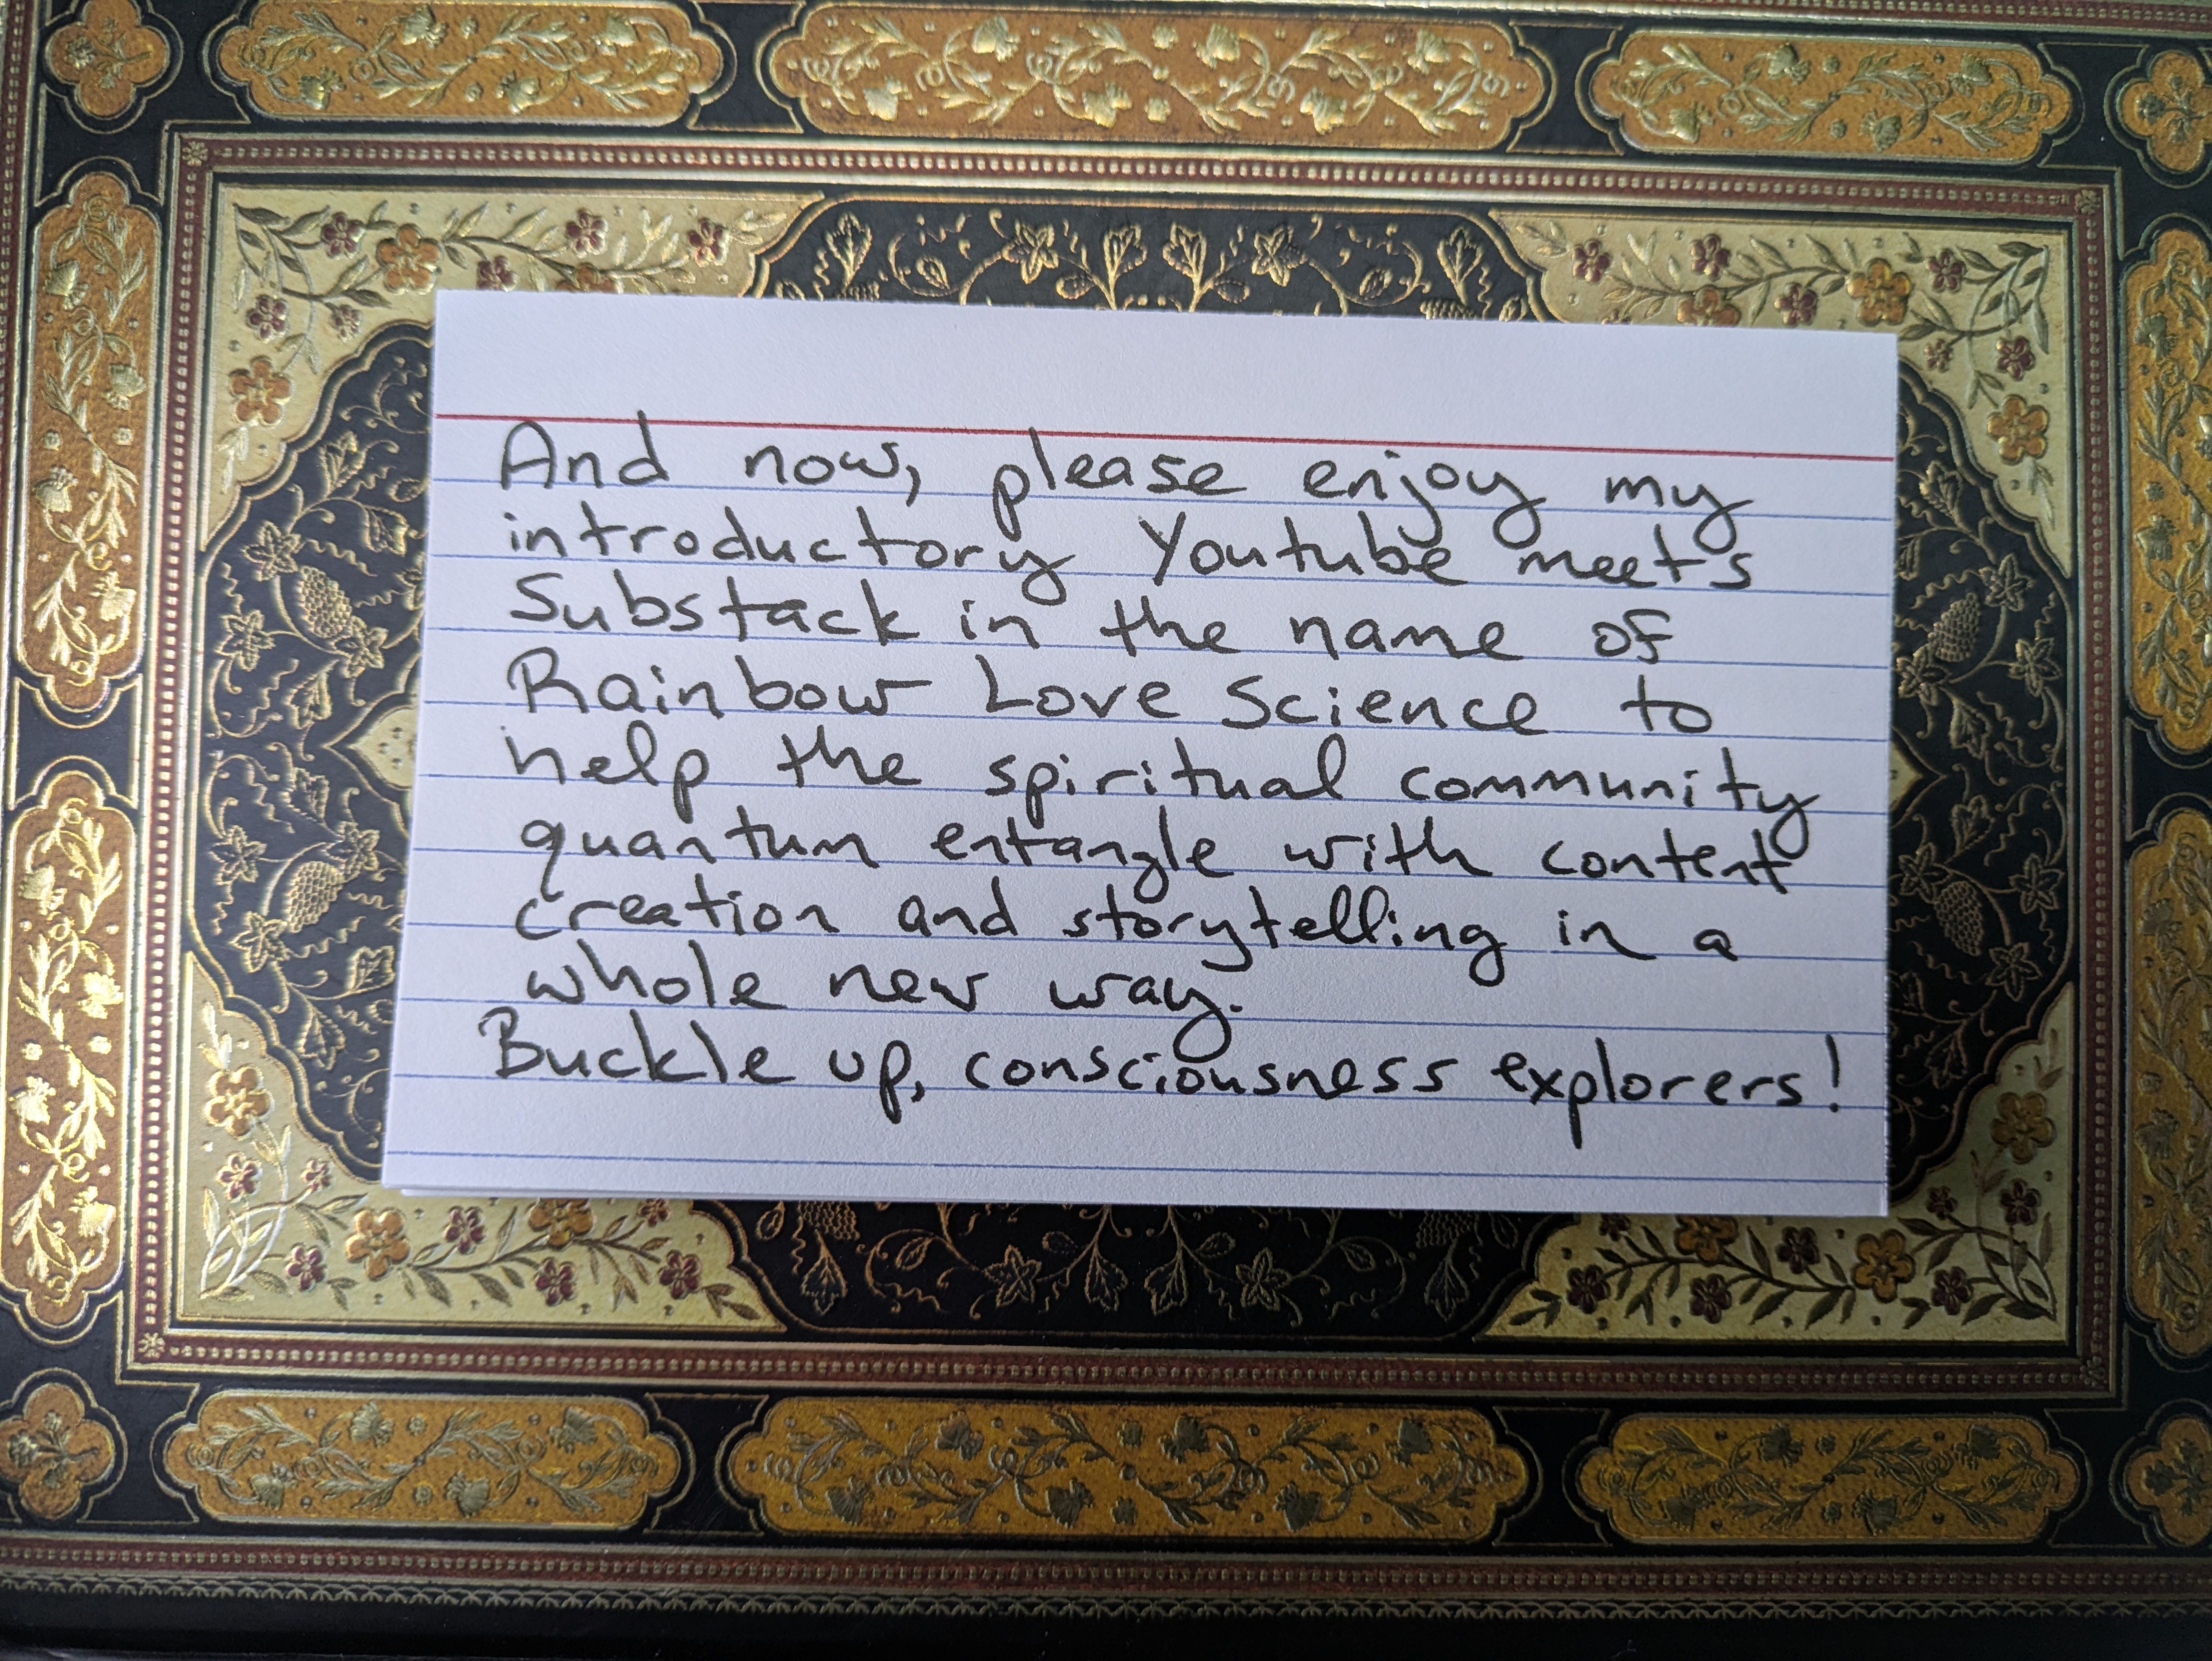 And now, please enjoy my
introductory Youtube meets
Substack in the name of
Rainbow Love Science to
help the spiritual community
quantum entangle with content
creation and storytelling in a
whole new way.
Buckle up, consciousness explorers!